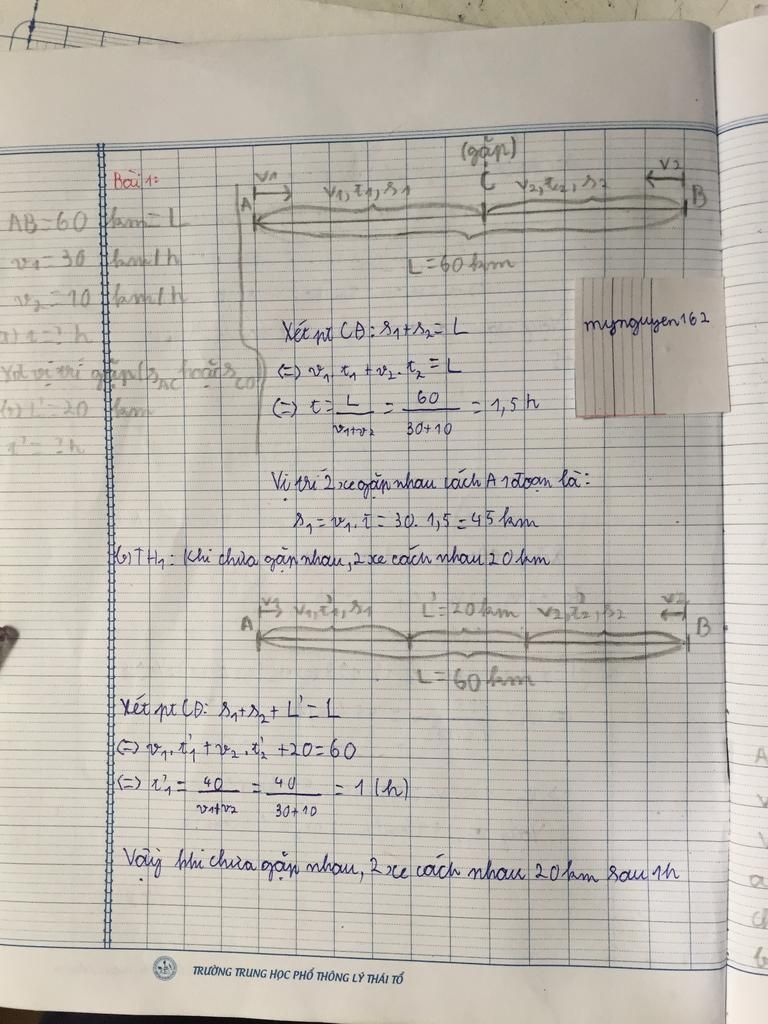 Bài 1:
AB = 60 km = L
v1 = 30 km/h
v2 = 10 km/h
a) t = ? h
vị trí gặp (sAC hoặc
b) L' = 20 km
t' = ? h
(gặp)
v1
v1, t1, s1
C
v2, t2, s2
v2
A
B
L = 60 km
Xét pt CĐ: s1 + s2 = L
(=) v1 t1 + v2. t2 = L
(=) t = L/(v1+v2) = 60/(30+10) = 1,5 h
mynguyen162
Vị trí 2 xe gặp nhau cách A 1 đoạn là:
s1 = v1. t = 30. 1,5 = 45 km
b) TH1: Khi chưa gặp nhau, 2 xe cách nhau 20 km
v1
v1, t'1, s1
L' = 20 km
v2, t'2, s2
v2
A
B
L = 60 km
Xét pt CĐ: s1 + s2 + L' = L
(=) v1. t'1 + v2. t'2 + 20 = 60
(=) t'1 = 40/(v1+v2) = 40/(30+10) = 1 (h)
Vậy khi chưa gặp nhau, 2 xe cách nhau 20 km sau 1h
TRƯỜNG TRUNG HỌC PHỔ THÔNG LÝ THÁI TỔ